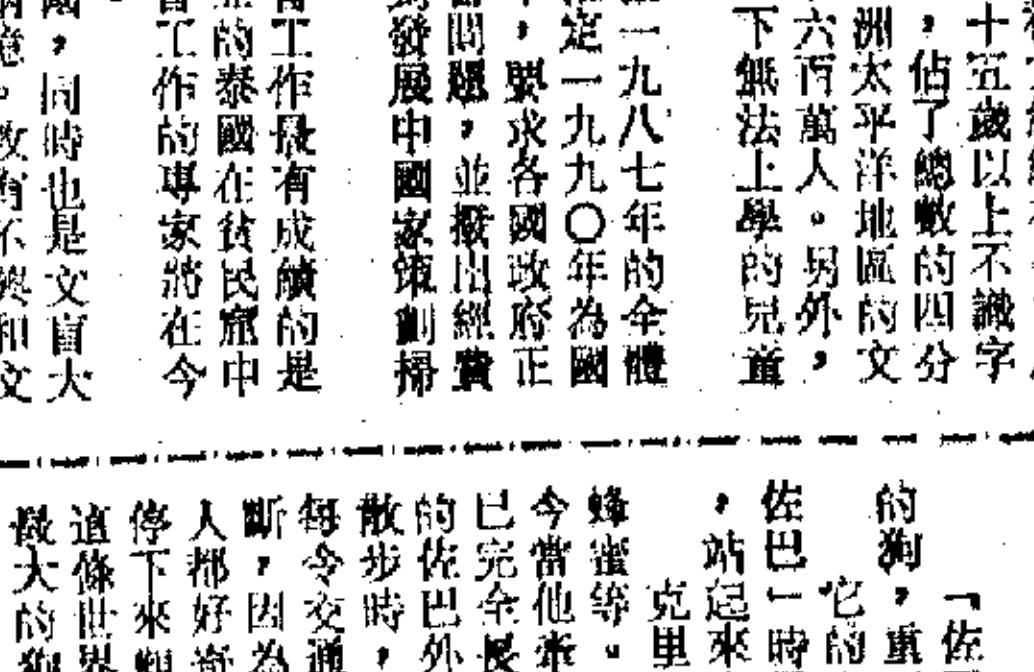 十五歲以上不識字
，佔了總數的四分
洲太平洋地區的文
六百萬人。另外，
下無法上學的兒童
一九八七年的全體
定一九九〇年為國
，要求各國政府正
問題，並撥出經費
發展中國家策劃掃
工作最有成績的是
的泰國在貧民窟中
工作的專家將在今
，同時也是文盲大
「佐
的狗，重
它的
佐巴」時
，站起來
克里
蜂蜜等。
今當他乘
已完全長
的佐巴外
散步時，
每令交通
斷，因為
人都好奇
停下來觀
這條世界
最大的狗